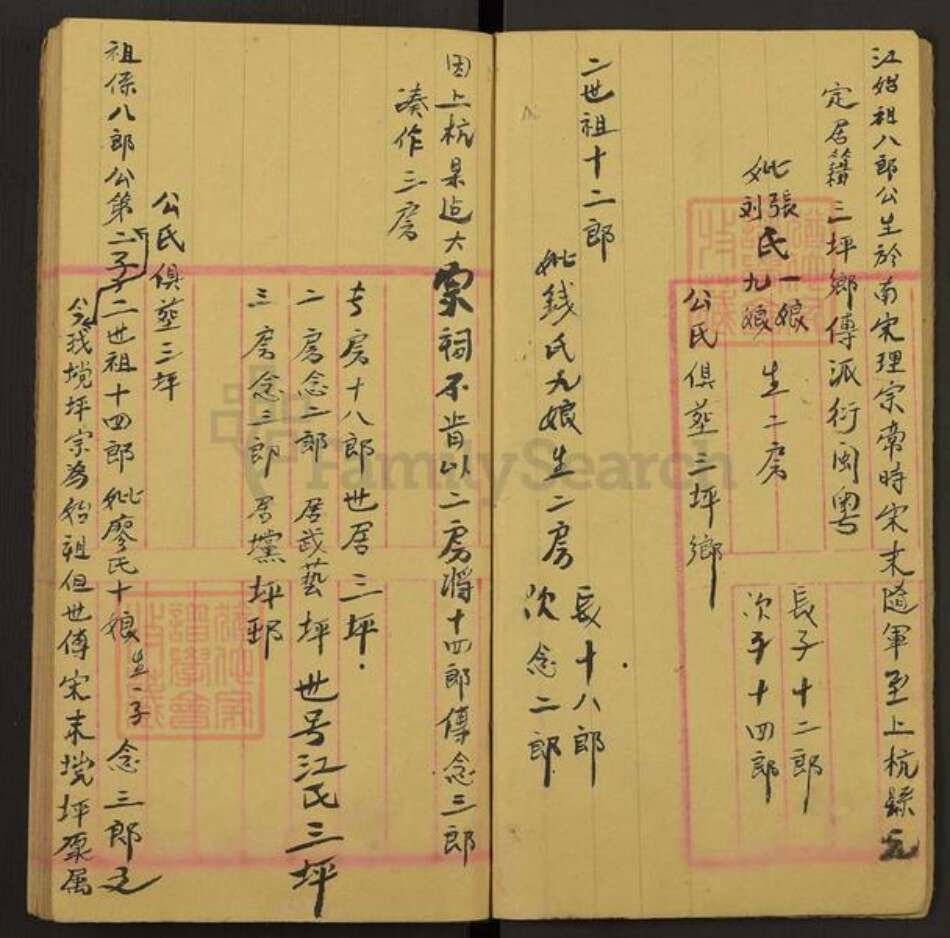 江始祖八郎公生於南宋理宗帝時宋末隨軍至上杭縣
定居籍三坪鄉傳派衍闽粤
妣張氏一娘
刘氏九娘
生二房
長子十二郎
次子十四郎
公氏俱塟三坪鄉
二世祖十二郎
妣錢氏九娘生二房
長十八郎
次念二郎
因上杭是造大宗祠不肯以二房將十四郎傳念三郎
凑作三房
長房十八郎世居三坪
二房念二郎 居武藝坪 世号江氏三坪
三房念三郎 居黨坪
公氏俱塟三坪
祖係八郎公第二子二世祖十四郎妣廖氏十娘生一子念三郎
今我坪宗為始祖但世傳宋末坪原属
FamilySearch